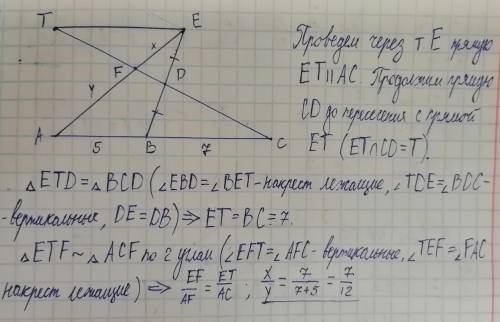 T
E
x
F
D
y
A
5
B
7
C
Проведем через т. E прямую
ET∥AC. Продолжим прямую
CD до пересечения с прямой
ET (ET∩CD=T).
△ETD=△BCD (∠EBD=∠BET-накрест лежащие, ∠TDE=∠BDC-
-вертикальные, DE=DB) ⇒ ET=BC=7.
△ETF~△ACF по 2 углам (∠EFT=∠AFC-вертикальные, ∠TEF=∠FAC
накрест лежащие) ⇒ EF/AF = ET/AC ; x/y = 7/(7+5) = 7/12